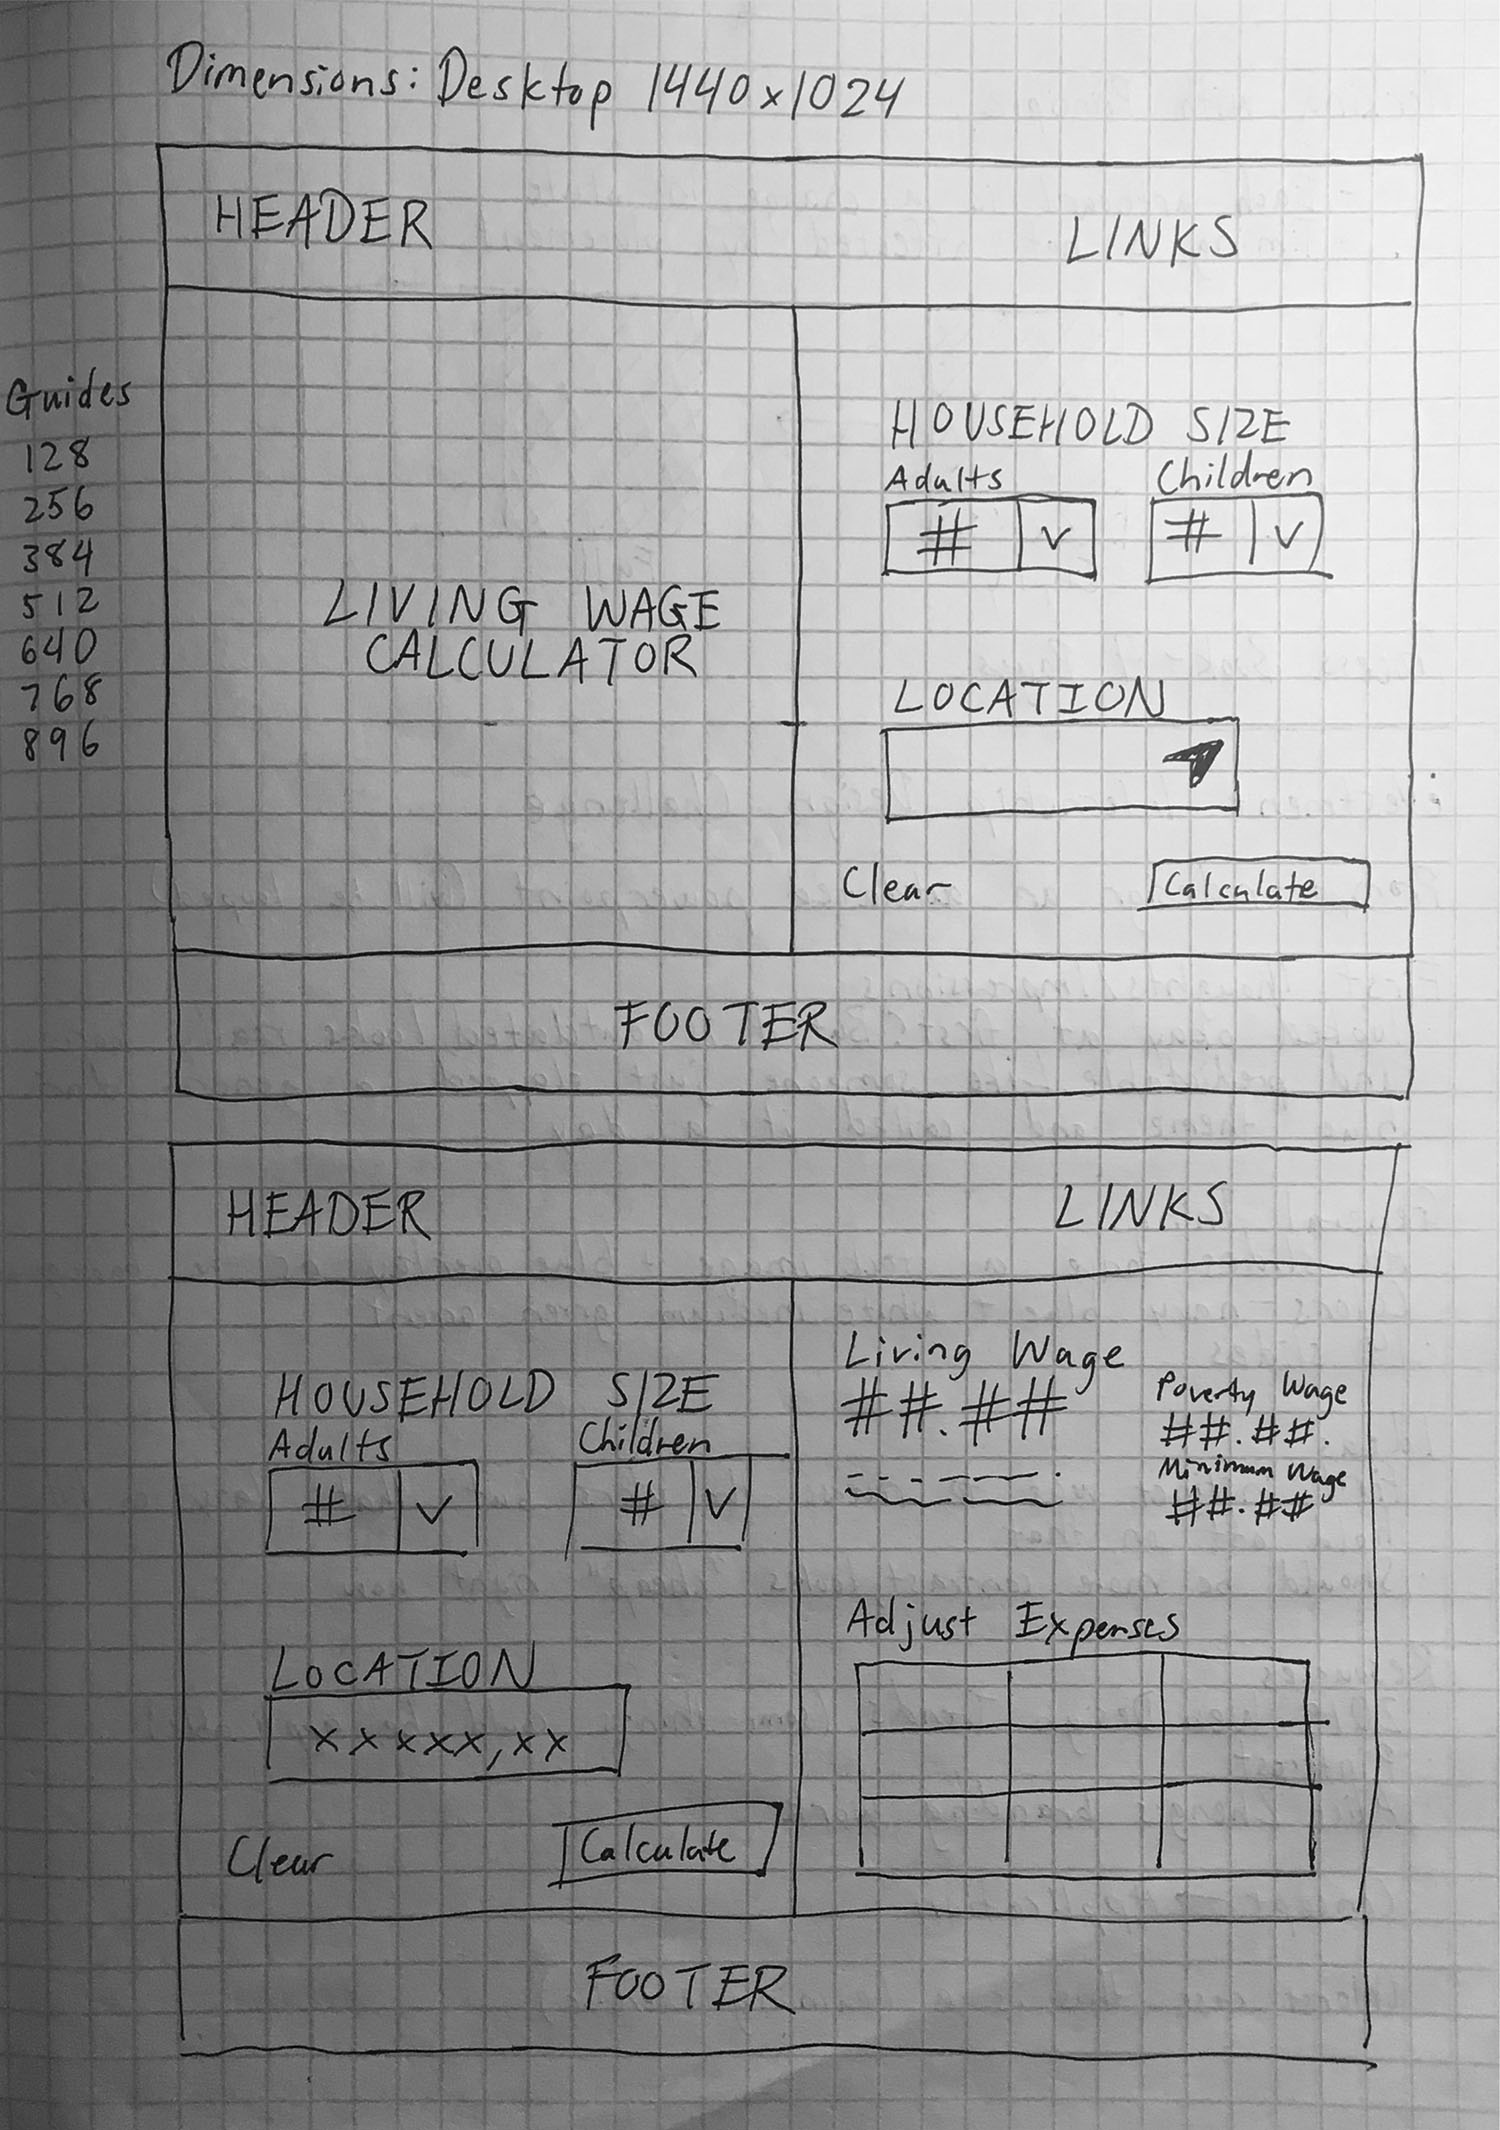 Dimensions: Desktop 1440x1024
HEADER LINKS
Guides
128
256
384
512
640
768
896
LIVING WAGE
CALCULATOR
HOUSEHOLD SIZE
Adults Children
# v # v
LOCATION
Clear Calculate
FOOTER
HEADER LINKS
HOUSEHOLD SIZE
Adults Children
# v # v
LOCATION
xxxxx,xx
Clear Calculate
Living Wage
##.##
Poverty Wage
##.##.
Minimum Wage
##.##
Adjust Expenses
FOOTER